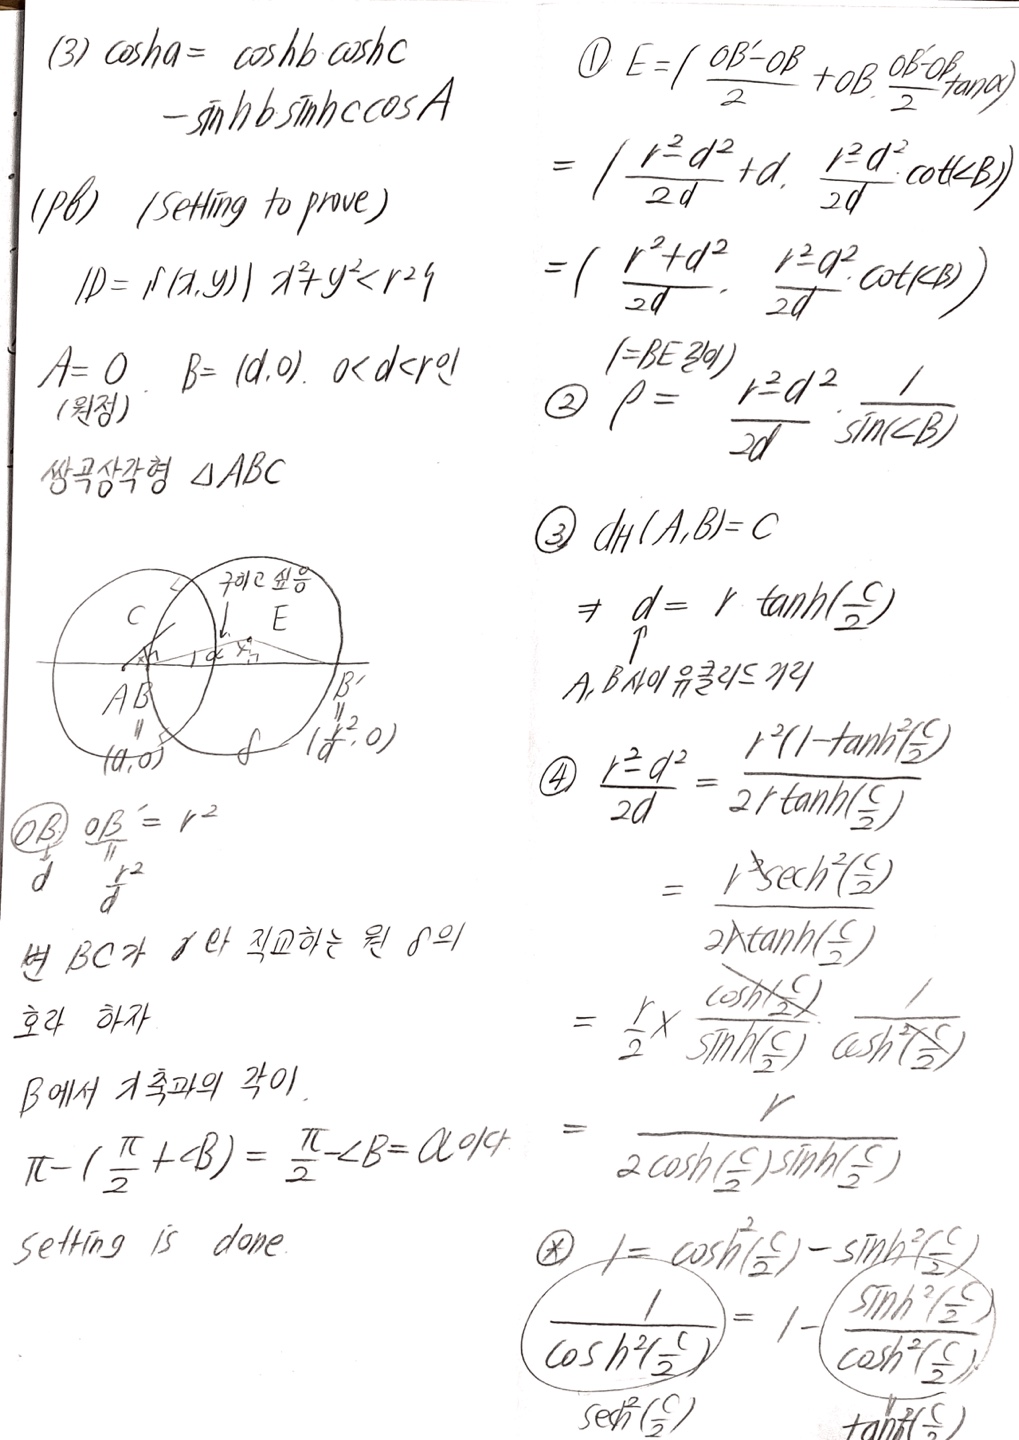 (3) cosha = coshb·coshc
-sinhb·sinhc cosA
(pf) (setting to prove)
D = {(x,y) | x²+y²<r²}
A = O. B = (d,0). 0<d<r인
(원점)
쌍곡삼각형 △ABC
구하고 싶음
C
E
α
A B
B′
(d,0)
δ
(r²/d, 0)
OB · OB′ = r²
d r²/d
변 BC가 γ와 직교하는 원 δ의
호라 하자
B에서 x축과의 각이.
π-(π/2+∠B) = π/2-∠B = α이다.
setting is done.
① E = ( (OB′-OB)/2 + OB, (OB′-OB)/2 tanα)
= ( (r²-d²)/2d + d, (r²-d²)/2d · cot(∠B))
= ( (r²+d²)/2d, (r²-d²)/2d · cot(∠B))
(=BE 길이)
② ρ = (r²-d²)/2d · 1/sin(∠B)
③ dH(A,B) = C
⇒ d = r tanh(c/2)
A, B 사이 유클리드 거리
④ (r²-d²)/2d = r²(1-tanh²(c/2)) / 2r tanh(c/2)
= r² sech²(c/2) / 2r tanh(c/2)
= r/2 × cosh(c/2)/sinh(c/2) · 1/cosh²(c/2)
= r / 2cosh(c/2)sinh(c/2)
(*) 1 = cosh²(c/2) - sinh²(c/2)
1/cosh²(c/2) = 1 - sinh²(c/2)/cosh²(c/2)
sech²(c/2) tanh²(c/2)